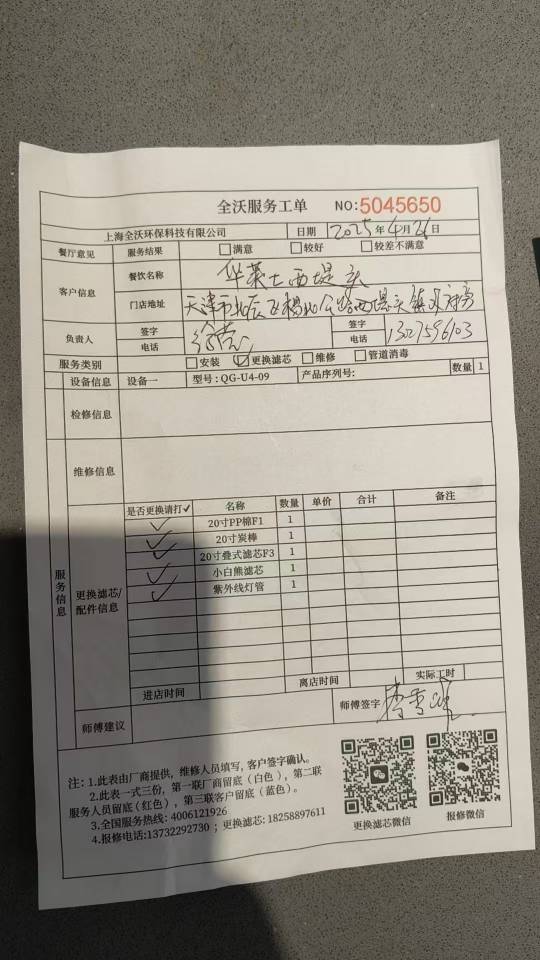 全沃服务工单 NO:5045650
上海全沃环保科技有限公司 日期 2025年4月26日
餐厅意见 服务结果 满意 较好 较差不满意
客户信息 餐饮名称 华莱士西堤头
门店地址 天津市北辰区杨北公路西堤头镇
负责人 签字 签字
电话 电话 13027596103
服务类别 安装 ✓更换滤芯 维修 管道消毒
设备信息 设备一 型号:QG-U4-09 产品序列号: 数量 1
检修信息
维修信息
服务信息
更换滤芯/配件信息
是否更换请打✓ 名称 数量 单价 合计 备注
✓ 20寸PP棉F1 1
✓ 20寸炭棒 1
✓ 20寸叠式滤芯F3 1
✓ 小白熊滤芯 1
✓ 紫外线灯管 1
进店时间 离店时间 实际工时
师傅建议 师傅签字
注:1.此表由厂商提供，维修人员填写，客户签字确认。
2.此表一式三份，第一联厂商留底（白色），第二联
服务人员留底(红色)，第三联客户留底（蓝色）。
3.全国服务热线: 4006121926
4.报修电话:13732292730 ; 更换滤芯: 18258897611
更换滤芯微信 报修微信